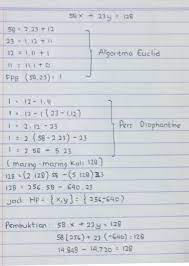 58x + 23y = 128
58 = 2.23 + 12
23 = 1.12 + 11
12 = 1.11 + 1
11 = 11.1 + 0
FPB (58,23) = 1
Algoritma Euclid
1 = 12 - 1.11
1 = 12 - 1 (23 - 1.12)
1 = 2.12 - 23
1 = 2 (58 - 2.23) - 23
1 = 2.58 - 5.23
Pers Diophantine
(maring-maring Kali 128)
128 = (2.128) 58 - (5.128) 23
128 = 256.58 - 640.23
jadi HP = {x,y} = {256,-640}
Pembuktian : 58x + 23y = 128
58 (256) + 23 (-640) = 128
14.848 - 14.720 = 128